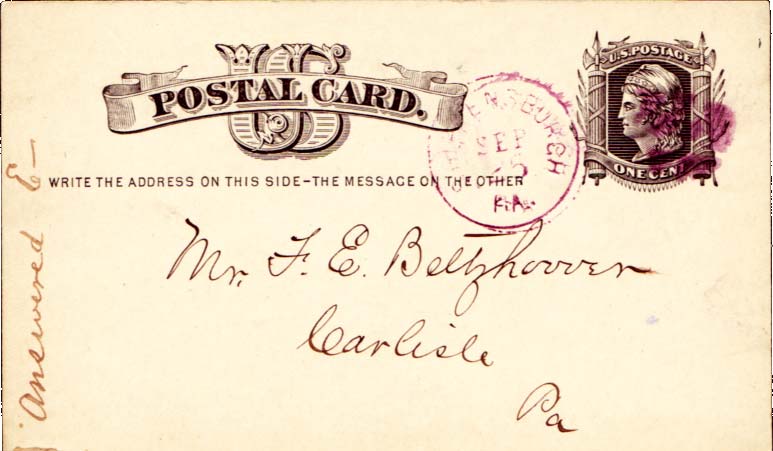 U.S. POSTAGE
POSTAL CARD.
WRITE THE ADDRESS ON THIS SIDE–THE MESSAGE ON THE OTHER
ONE CENT
SEP
25
PA.
Mr. F. E. Beltzhoover
Carlisle
Pa
Answered E–